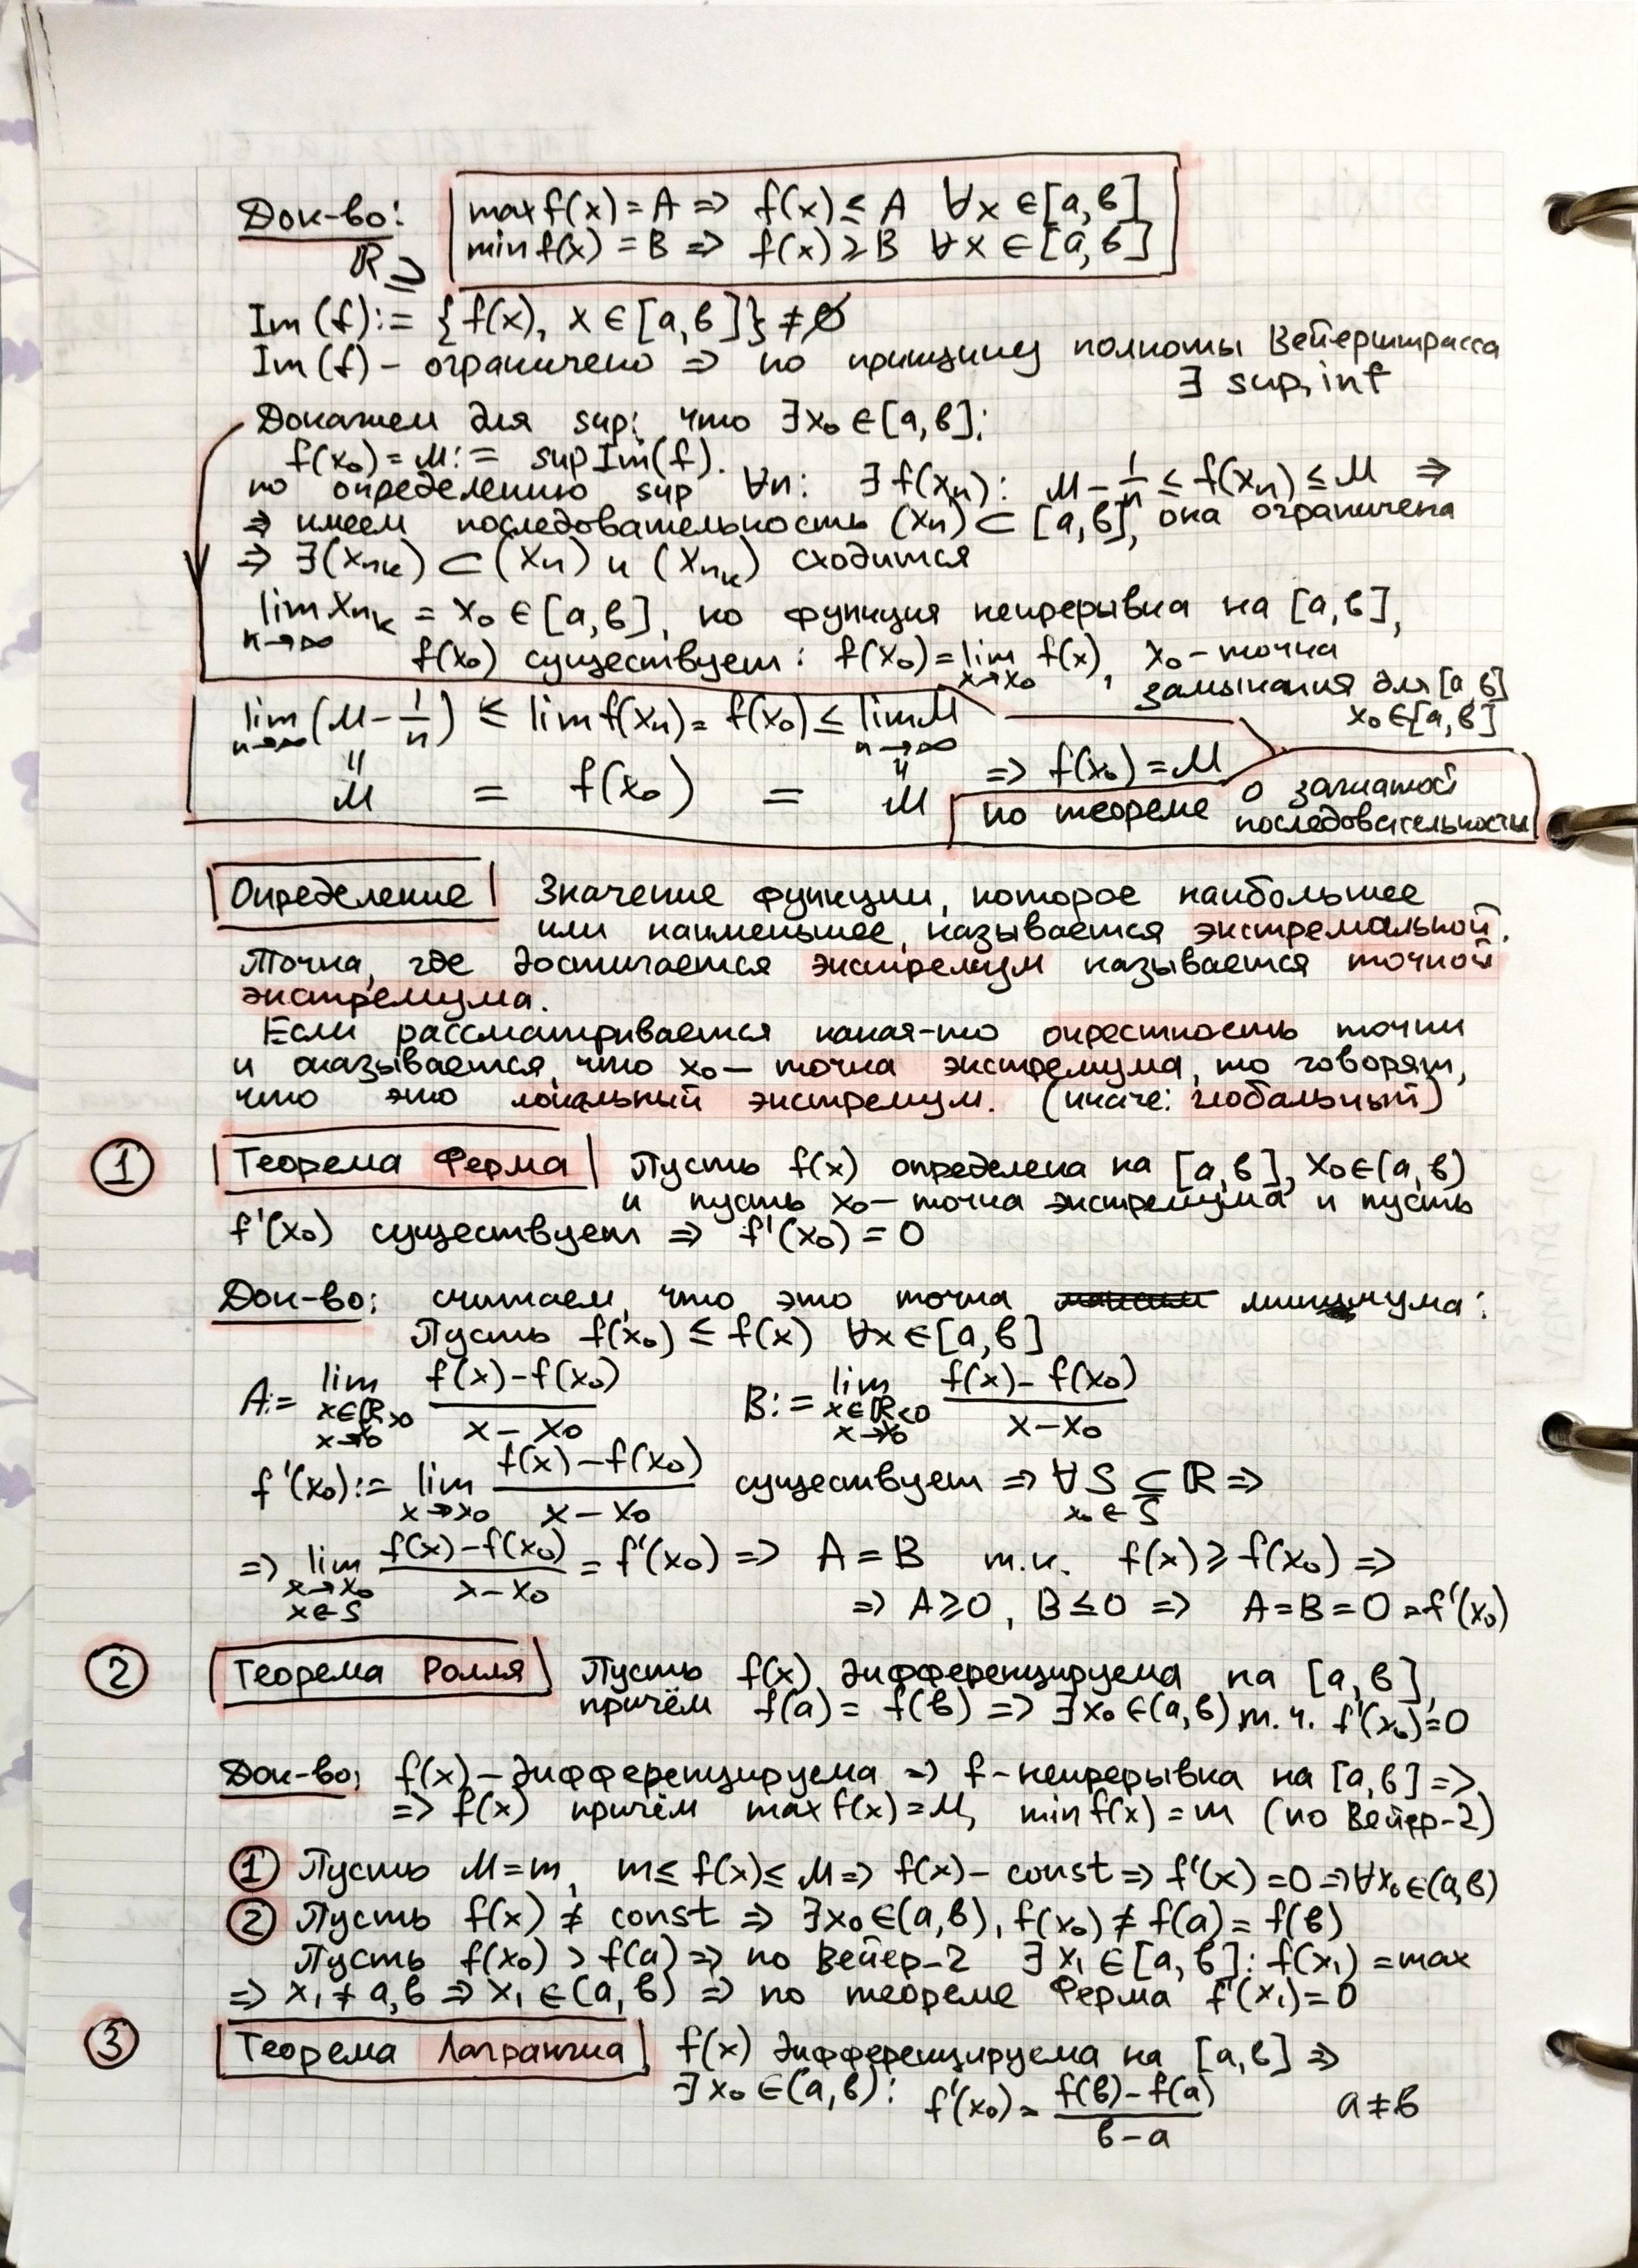 Док-во: max f(x) = A => f(x) ≤ A ∀x ∈ [a, в]
min f(x) = B => f(x) ≥ B ∀x ∈ [a, в]
ℝ ⊇
Im(f) := {f(x), x ∈ [a, в]} ≠ ∅
Im(f) – ограничено => по принципу полноты Вейерштрасса
∃ sup, inf
Докажем для sup: что ∃x₀ ∈ [a, в]:
f(x₀) = M := sup Im(f).
по определению sup ∀n: ∃f(xₙ): M - 1/n ≤ f(xₙ) ≤ M =>
=> имеем последовательность (xₙ) ⊂ [a, в], она ограничена
=> ∃(xₙₖ) ⊂ (xₙ) и (xₙₖ) сходится
lim xₙₖ = x₀ ∈ [a, в], но функция непрерывна на [a, в],
n→∞
f(x₀) существует: f(x₀) = lim f(x), x₀ – точка
x→x₀
замыкания для [a, в]
x₀ ∈ [a, в]
lim (M - 1/n) ≤ lim f(xₙ) = f(x₀) ≤ lim M
n→∞ n→∞
" "
M = f(x₀) = M => f(x₀) = M
по теореме о зажатой
последовательности
Определение Значение функции, которое наибольшее
или наименьшее, называется экстремальной.
Точка, где достигается экстремум называется точкой
экстремума.
Если рассматривается какая-то окрестность точки
и оказывается, что x₀ – точка экстремума, то говорят,
что это локальный экстремум. (иначе: глобальный)
① Теорема Ферма Пусть f(x) определена на [a, в], x₀ ∈ (a, в)
и пусть x₀ – точка экстремума и пусть
f'(x₀) существует => f'(x₀) = 0
Док-во: считаем, что это точка минимума:
Пусть f(x₀) ≤ f(x) ∀x ∈ [a, в]
A := lim (f(x) - f(x₀))/(x - x₀) B := lim (f(x) - f(x₀))/(x - x₀)
x∈ℝ>0 x∈ℝ<0
x→x₀ x→x₀
f'(x₀) := lim (f(x) - f(x₀))/(x - x₀) существует => ∀S ⊆ ℝ =>
x→x₀ x₀ ∈ S
=> lim (f(x) - f(x₀))/(x - x₀) = f'(x₀) => A = B т.к. f(x) ≥ f(x₀) =>
x→x₀
x∈S => A ≥ 0, B ≤ 0 => A = B = 0 = f'(x₀)
② Теорема Ролля Пусть f(x) дифференцируема на [a, в],
причём f(a) = f(в) => ∃x₀ ∈ (a, в) т.ч. f'(x₀) = 0
Док-во: f(x) – дифференцируема => f – непрерывна на [a, в] =>
=> f(x) причём max f(x) = M, min f(x) = m (по Вейер-2)
① Пусть M = m, m ≤ f(x) ≤ M => f(x) – const => f'(x) = 0 => ∀x₀ ∈ (a, в)
② Пусть f(x) ≠ const => ∃x₀ ∈ (a, в), f(x₀) ≠ f(a) = f(в)
Пусть f(x₀) > f(a) => по Вейер-2 ∃x₁ ∈ [a, в]: f(x₁) = max
=> x₁ ≠ a, в => x₁ ∈ (a, в) => по теореме Ферма f'(x₁) = 0
③ Теорема Лагранжа f(x) дифференцируема на [a, в] =>
∃x₀ ∈ (a, в): f'(x₀) = (f(в) - f(a))/(в - a) a ≠ в